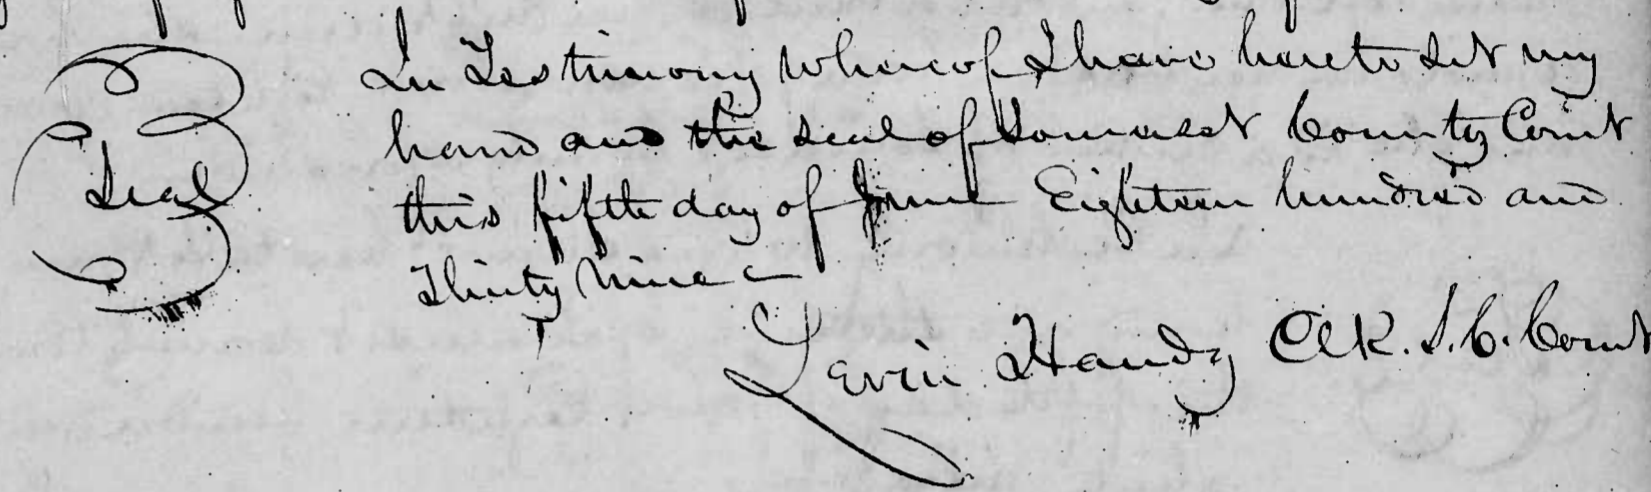 In Testimony Whereof I have hereto set my
hand and the seal of Somerset County Court
Seal
this fifth day of June Eighteen hundred and
Thirty Nine
Levin Handy Clk. S. C. Court